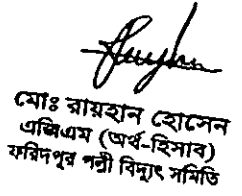 মোঃ রায়হান হোসেন
এজিএম (অর্থ-হিসাব)
ফরিদপুর পল্লী বিদ্যুৎ সমিতি